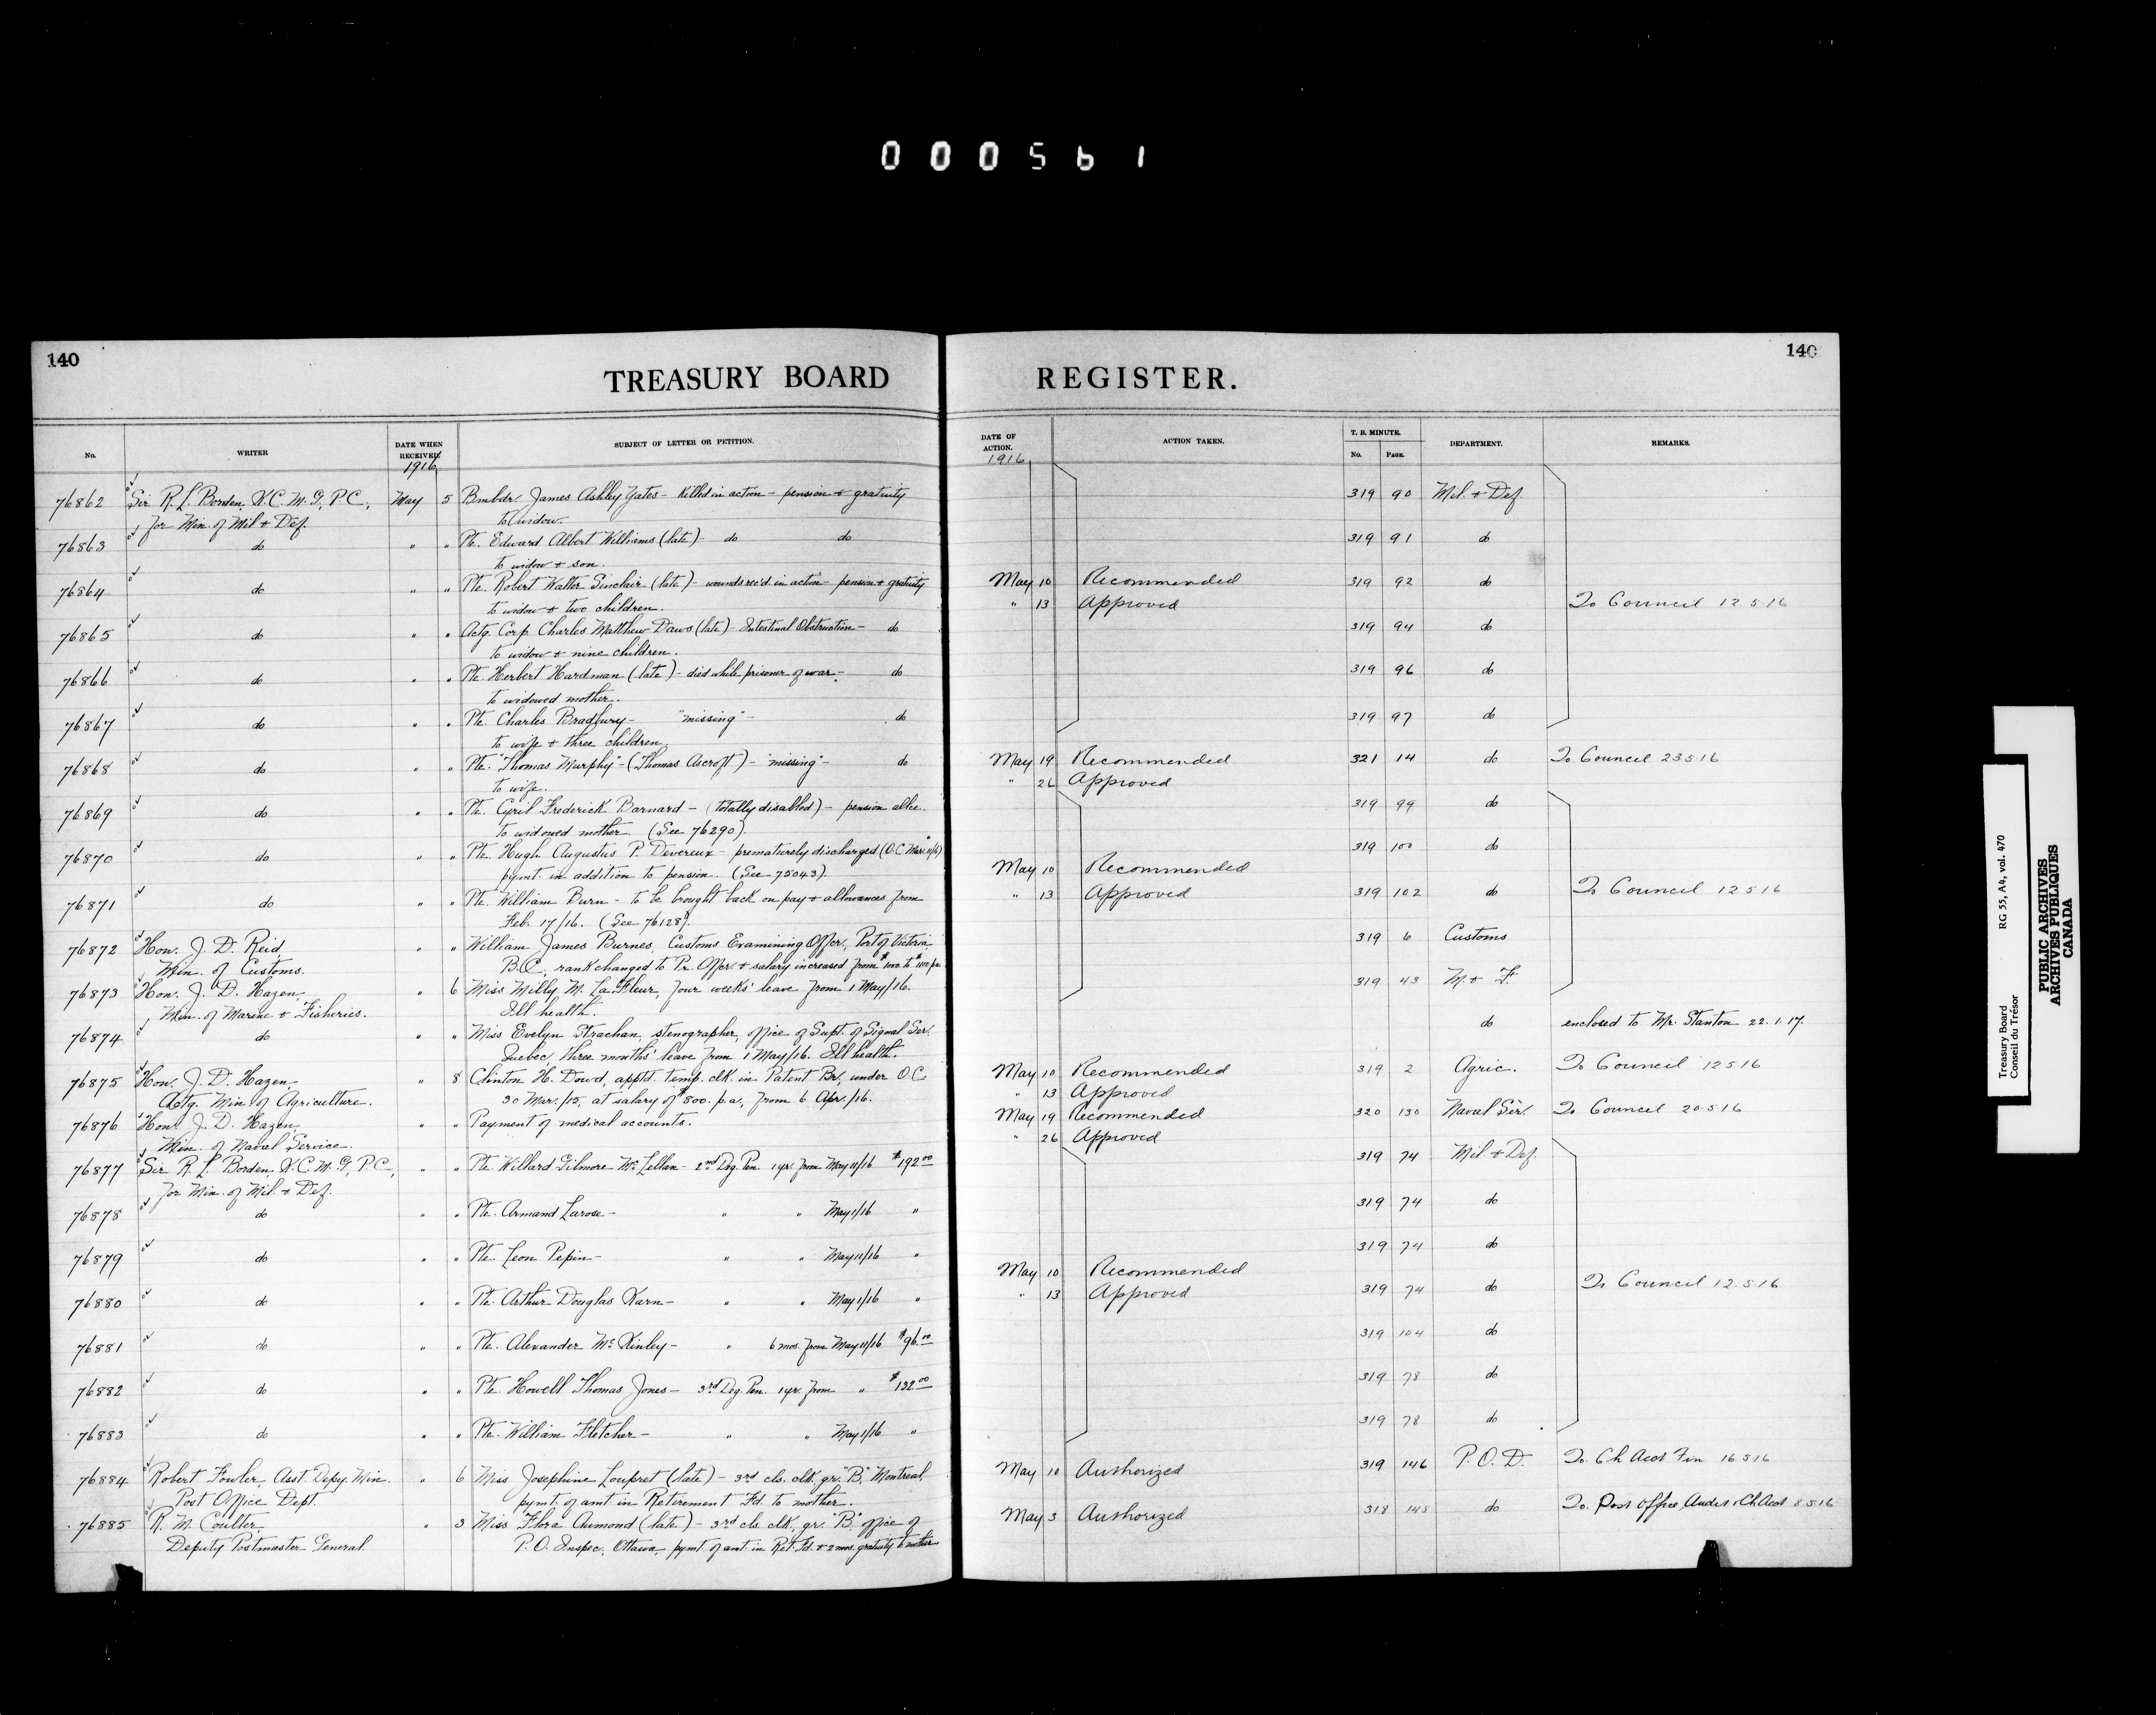 000561
140
TREASURY BOARD REGISTER.
140
No. WRITER DATE WHEN RECEIVED SUBJECT OF LETTER OR PETITION. DATE OF ACTION. ACTION TAKEN. T. B. MINUTE. No. PAGE. DEPARTMENT. REMARKS.
1916 1916
76862 Sir R. L. Borden, K.C.M.G., P.C., May 5 Bmbdr. James Ashley Yates - killed in action - pension & gratuity 319 90 Mil. & Def
for Min. of Mil & Def. to widow.
76863 do " " Pte. Edward Albert Williams (late) - do do 319 91 do
to widow & son.
76864 do " " Pte. Robert Walter Sinclair (late) - wounds rec'd in action - pension & gratuity May 10 Recommended 319 92 do
to widow & two children. " 13 Approved To Council 12.5.16
76865 do " " Actg. Corp. Charles Matthew Daws (late) - Intestinal Obstruction - do 319 94 do
to widow & nine children.
76866 do " " Pte. Herbert Hardman (late) - died while prisoner of war - do 319 96 do
to widowed mother.
76867 do " " Pte. Charles Bradbury - "missing" - do 319 97 do
to wife & three children
76868 do " " Pte. "Thomas Murphy" - (Thomas Ascroft) - "missing" - do May 19 Recommended 321 14 do To Council 23.5.16
to wife. " 26 Approved
76869 do " " Pte. Cyril Frederick Barnard - (totally disabled) - pension allce. 319 99 do
to widowed mother. (See 76290).
76870 do " " Pte. Hugh Augustus P. Devereux - prematurely discharged (O.C. Mar. 11/16) 319 100 do
pymt. in addition to pension. (See 75043). May 10 Recommended
76871 do " " Pte. William Burn - to be brought back on pay & allowances from " 13 Approved 319 102 do To Council 12.5.16
Feb. 17/16. (See 76128).
76872 Hon. J. D. Reid, " " William James Burnes, Customs Examining Offcr., Port of Victoria, 319 6 Customs
Min. of Customs. B.C., rank changed to Pr. Offcr. & salary increased from
76873 Hon. J. D. Hazen, " 6 Miss Milly M. La Fleur, four weeks' leave from 1 May/16. 319 43 M. & F.
Min. of Marine & Fisheries. Ill health.
76874 do " " Miss Evelyn Strachan, stenographer, office of Supt. of Signal Ser. do enclosed to Mr. Stanton 22.1.17.
Quebec, three months' leave from 1 May/16. Ill health.
76875 Hon. J. D. Hazen, " 8 Clinton H. Dowd, apptd. temp. clk. in Patent Br. under O.C. May 10 Recommended 319 2 Agric. To Council 12.5.16
Actg. Min. of Agriculture. 30 Mar./15, at salary of $800. p.a., from 6 Apr./16. " 13 Approved
76876 Hon. J. D. Hazen, " " Payment of medical accounts. May 19 Recommended 320 130 Naval Ser. To Council 20.5.16
Min. of Naval Service. " 26 Approved
76877 Sir R. L. Borden, K.C.M.G., P.C., " " Pte. Willard Gilmore McLellan - 2nd Deg. Pen. 1 yr. from May 11/16 $192.00 319 74 Mil. & Def.
for Min. of Mil. & Def.
76878 do " " Pte. Armand Larose - " " May 1/16 " 319 74 do
76879 do " " Pte. Leon Pepin - " " May 11/16 " 319 74 do
May 10 Recommended
76880 do " " Pte. Arthur Douglas Karn - " " May 1/16 " " 13 Approved 319 74 do To Council 12.5.16
76881 do " " Pte. Alexander McKinley - " 6 mos. from May 11/16 $96.00 319 104 do
76882 do " " Pte. Howell Thomas Jones - 3rd Deg. Pen. 1 yr. from " $132.00 319 78 do
76883 do " " Pte. William Fletcher - " " May 1/16 " 319 78 do
76884 Robert Fowler, Asst. Depy. Min. " 6 Miss Josephine Loupret (late) - 3rd cls. clk. gr. "B." Montreal, May 10 Authorized 319 146 P.O.D. To Ch Acct Fin 16.5.16
Post Office Dept. pymt. of amt in Retirement Fd. to mother.
76885 R. M. Coulter, " 3 Miss Flora Aumond (late) - 3rd cls. clk. gr. "B." office of May 3 Authorized 318 145 do To Post Office, Ch Acct 8.5.16
Deputy Postmaster General. P.O. Inspec., Ottawa, pymt. of amt. in Ret. Fd. & 2 mos. gratuity to mother
Treasury Board RG 55, A4, vol. 470
Conseil du Trésor
PUBLIC ARCHIVES
ARCHIVES PUBLIQUES
CANADA